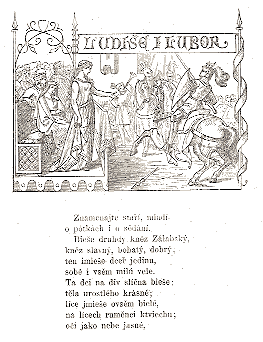 LUDIŠE I LUBOR
Znamenajte staří, mladí
o pótkách i o sědání.
Bieše druhdy kněz Zálabský,
kněz slavný, bohatý, dobrý;
ten imieše dceř jedinu,
sobě i vsěm milú vele.
Ta dci na div slična bieše;
těla urostlého krásně;
líce jmieše ovšem bielé,
na lícech ruměnci ktviechu;
oči jako nebe jasné,